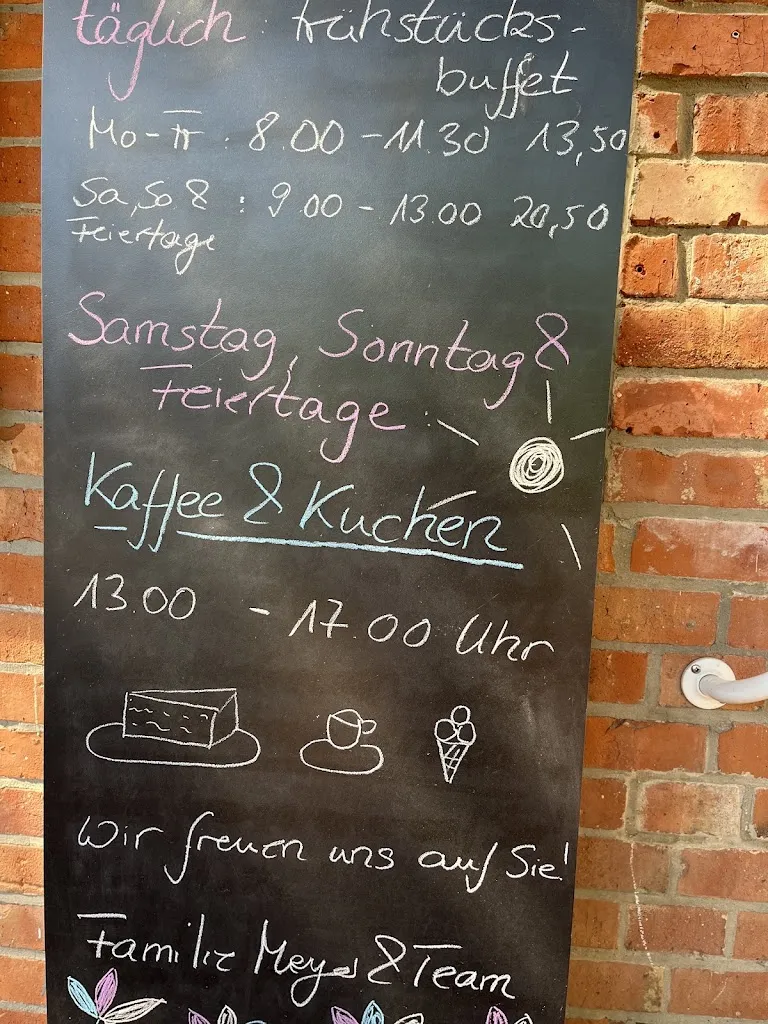 täglich: Frühstücks-
buffet
Mo-Fr: 8.00 - 11.30 13,50
Sa, So & : 9.00 - 13.00 20,50
Feiertage
Samstag, Sonntag &
Feiertage:
Kaffee & Kuchen
13.00 - 17.00 Uhr
Wir freuen uns auf Sie!
Familie Meyer & Team